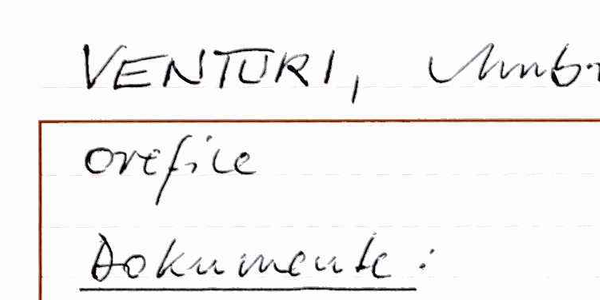 VENTURI,
orefice
Dokumente: